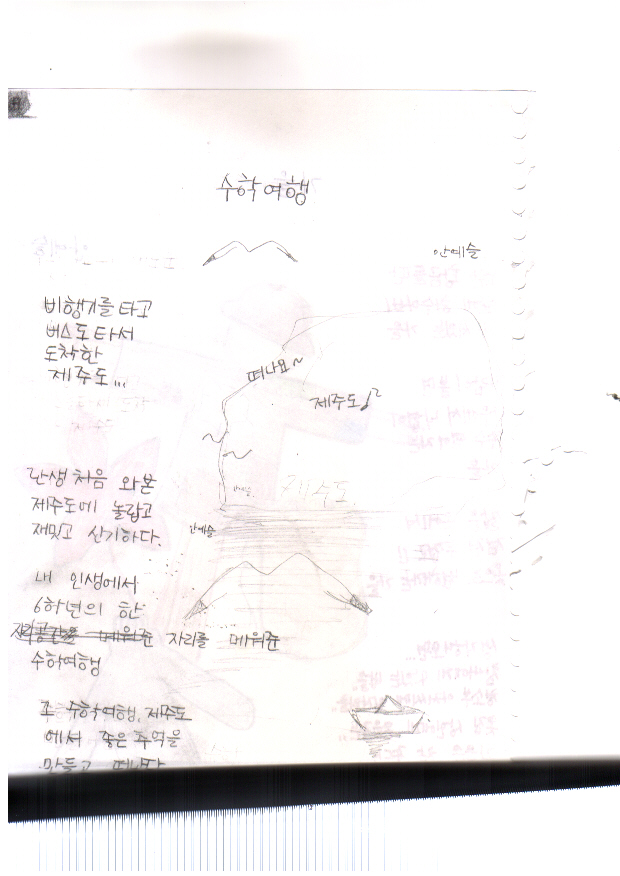 수학여행
안예슬
비행기를 타고
버스도 타서
도착한
제주도...
떠나요~
제주도♪
난생 처음 와본
제주도에 놀랍고
재밋고 신기하다.
제주도
안예슬
내 인생에서
6학년의 한
자리를 메워준
수학여행
수학여행, 제주도
에서 좋은 추억을
만들고 떠난다